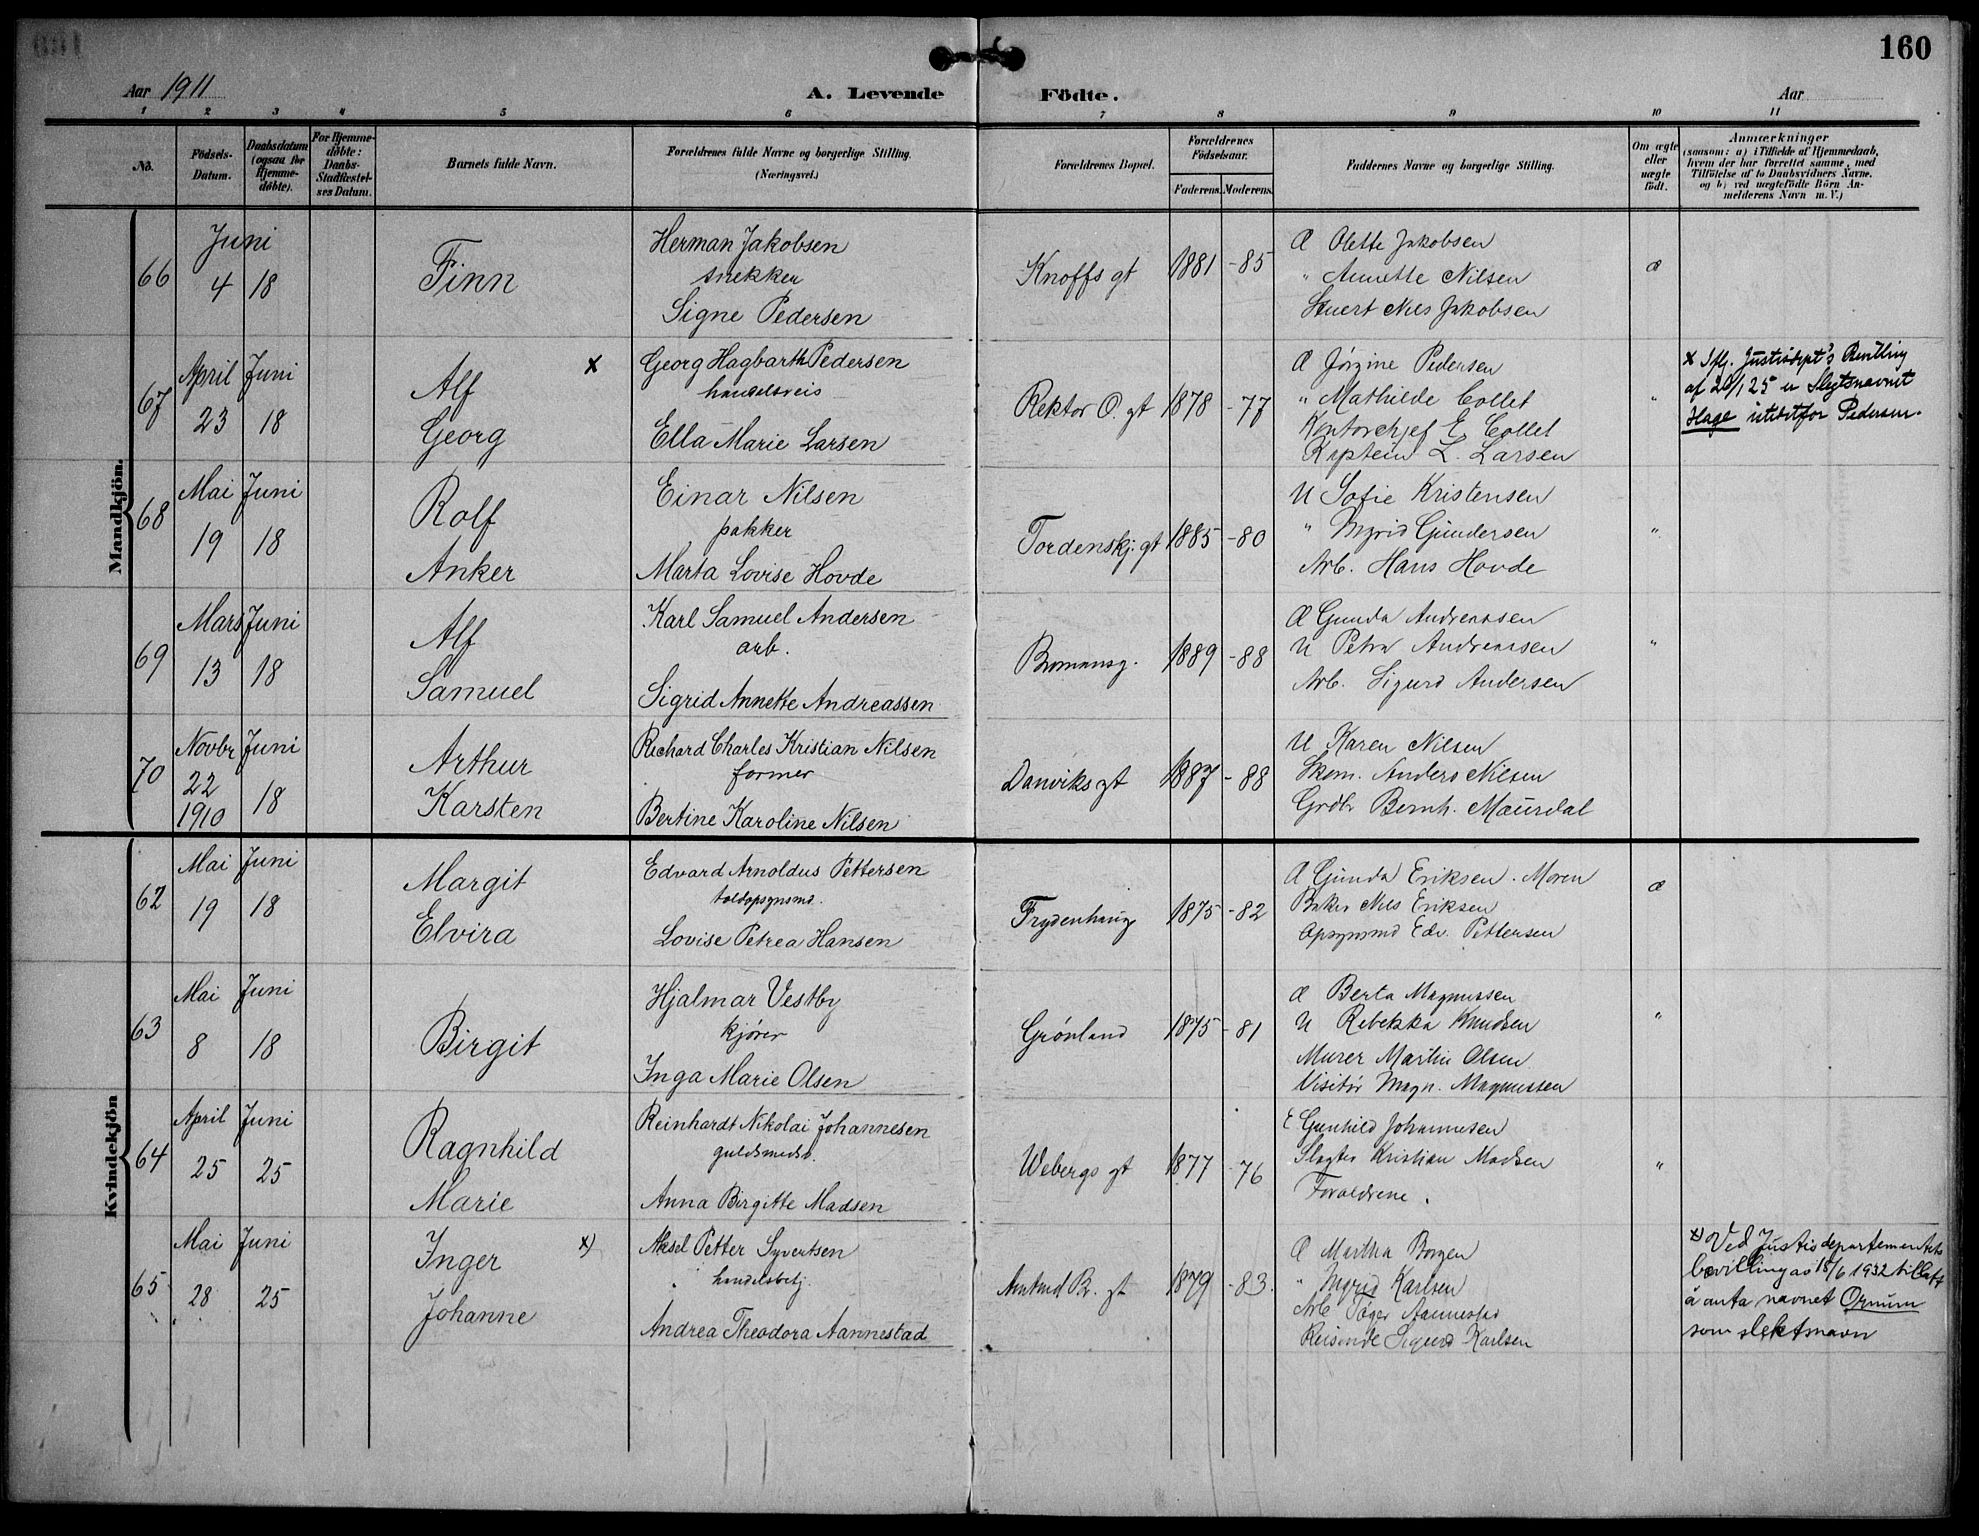 160
Aar 1911
A. Levende Födte.
Aar
1 2 3 4 5 6 7 8 9 10 11
No.
Födsels-Datum.
Daabsdatum (ogsaa for Hjemme-døbte).
For Hjemme-døbte: Daabs-Stadfæstel-ses Datum.
Barnets fulde Navn.
Forældrenes fulde Navne og borgerlige Stilling.
(Næringsvei.)
Forældrenes Bopæl.
Forældrenes Födselsaar.
Faderens. Moderens.
Faddernes Navne og borgerlige Stilling.
Om ægte eller uægte födt.
Anmærkninger
(saasom: a) i Tilfælde af Hjemmedaab,
hvem der har forrettet samme, med
Tilföielse af to Daabsvidners Navne,
og b) ved uægtefödte Börn An-
melderens Navn m. V.)
Mandkjön.
66
Juni
4 18
Finn
Herman Jakobsen
snekker
Signe Pedersen
Knoffs gt
1881 -85
Æ Olette Jakobsen
" Annette Nilsen
Stuert Nils Jakobsen
æ
67
April Juni
23 18
Alf x
Georg
Georg Hagbarth Pedersen
handelsreis
Ella Marie Larsen
Rektor O. gt
1878 -77
Æ Jørgine Pedersen
" Mathilde Collet
Kontorchef E. Collet
Kaptein L. Larsen
"
x Iflg. Justisdept's Bevilling
af 20/1 25 er Slegtsnavnet
Hage istedetfor Pedersen.
68
Mai Juni
19 18
Rolf
Anker
Einar Nilsen
pakker
Marta Lovise Hovde
Tordenskj. gt
1885 -80
U Sofie Kristensen
" Ingrid Gundersen
Arb. Hans Hovde
"
69
Mars Juni
13 18
Alf
Samuel
Karl Samuel Andersen
arb.
Sigrid Annette Andreassen
Bomansg.
1889 -88
Æ Gunda Andreassen
U Petra Andreassen
Arb. Sigurd Andersen
"
70
Novbr Juni
22
1910 18
Arthur
Karsten
Richard Charles Kristian Nilsen
former
Bertine Karoline Nilsen
Danviks gt
1887 -88
U Karen Nilsen
Skom. Anders Nilsen
Grdbr Bernh. Maurdal
Kvindekjön
62
Mai Juni
19 18
Margit
Elvira
Edvard Arnoldus Pettersen
toldopsynsmd.
Lovise Petrea Hansen
Frydenhaug
1875 -82
Æ Gunda Eriksen. Moren
Baker Nils Eriksen
Opsynsmd Edv. Pettersen
æ
63
Mai Juni
8 18
Birgit
Hjalmar Vestby
kjører
Inga Marie Olsen
Grønland
1875 -81
Æ Berta Magnussen
U Rebekka Knudsen
Murer Martin Olsen
Visitør Magn. Magnussen
"
64
April Juni
25 25
Ragnhild
Marie
Reinhardt Nikolai Johannesen
guldsmedsv.
Anna Birgitte Madsen
Webergs gt
1877 -76
E Gunhild Johannesen
Slagter Kristian Madsen
Forældrene.
"
65
Mai Juni
28 25
Inger x)
Johanne
Aksel Petter Syvertsen
handelsbetj.
Andrea Theodora Aannestad
Amtmd B. gt
1879 -83.
Æ Martha Borgen
" Ingrid Karlsen
Arb. Aannestad
Reisende Sigurd Karlsen
x) Ved Justisdepartementets
bevilling av 18/6 1932 tillatt
å anta navnet Ornum
som slektsnavn